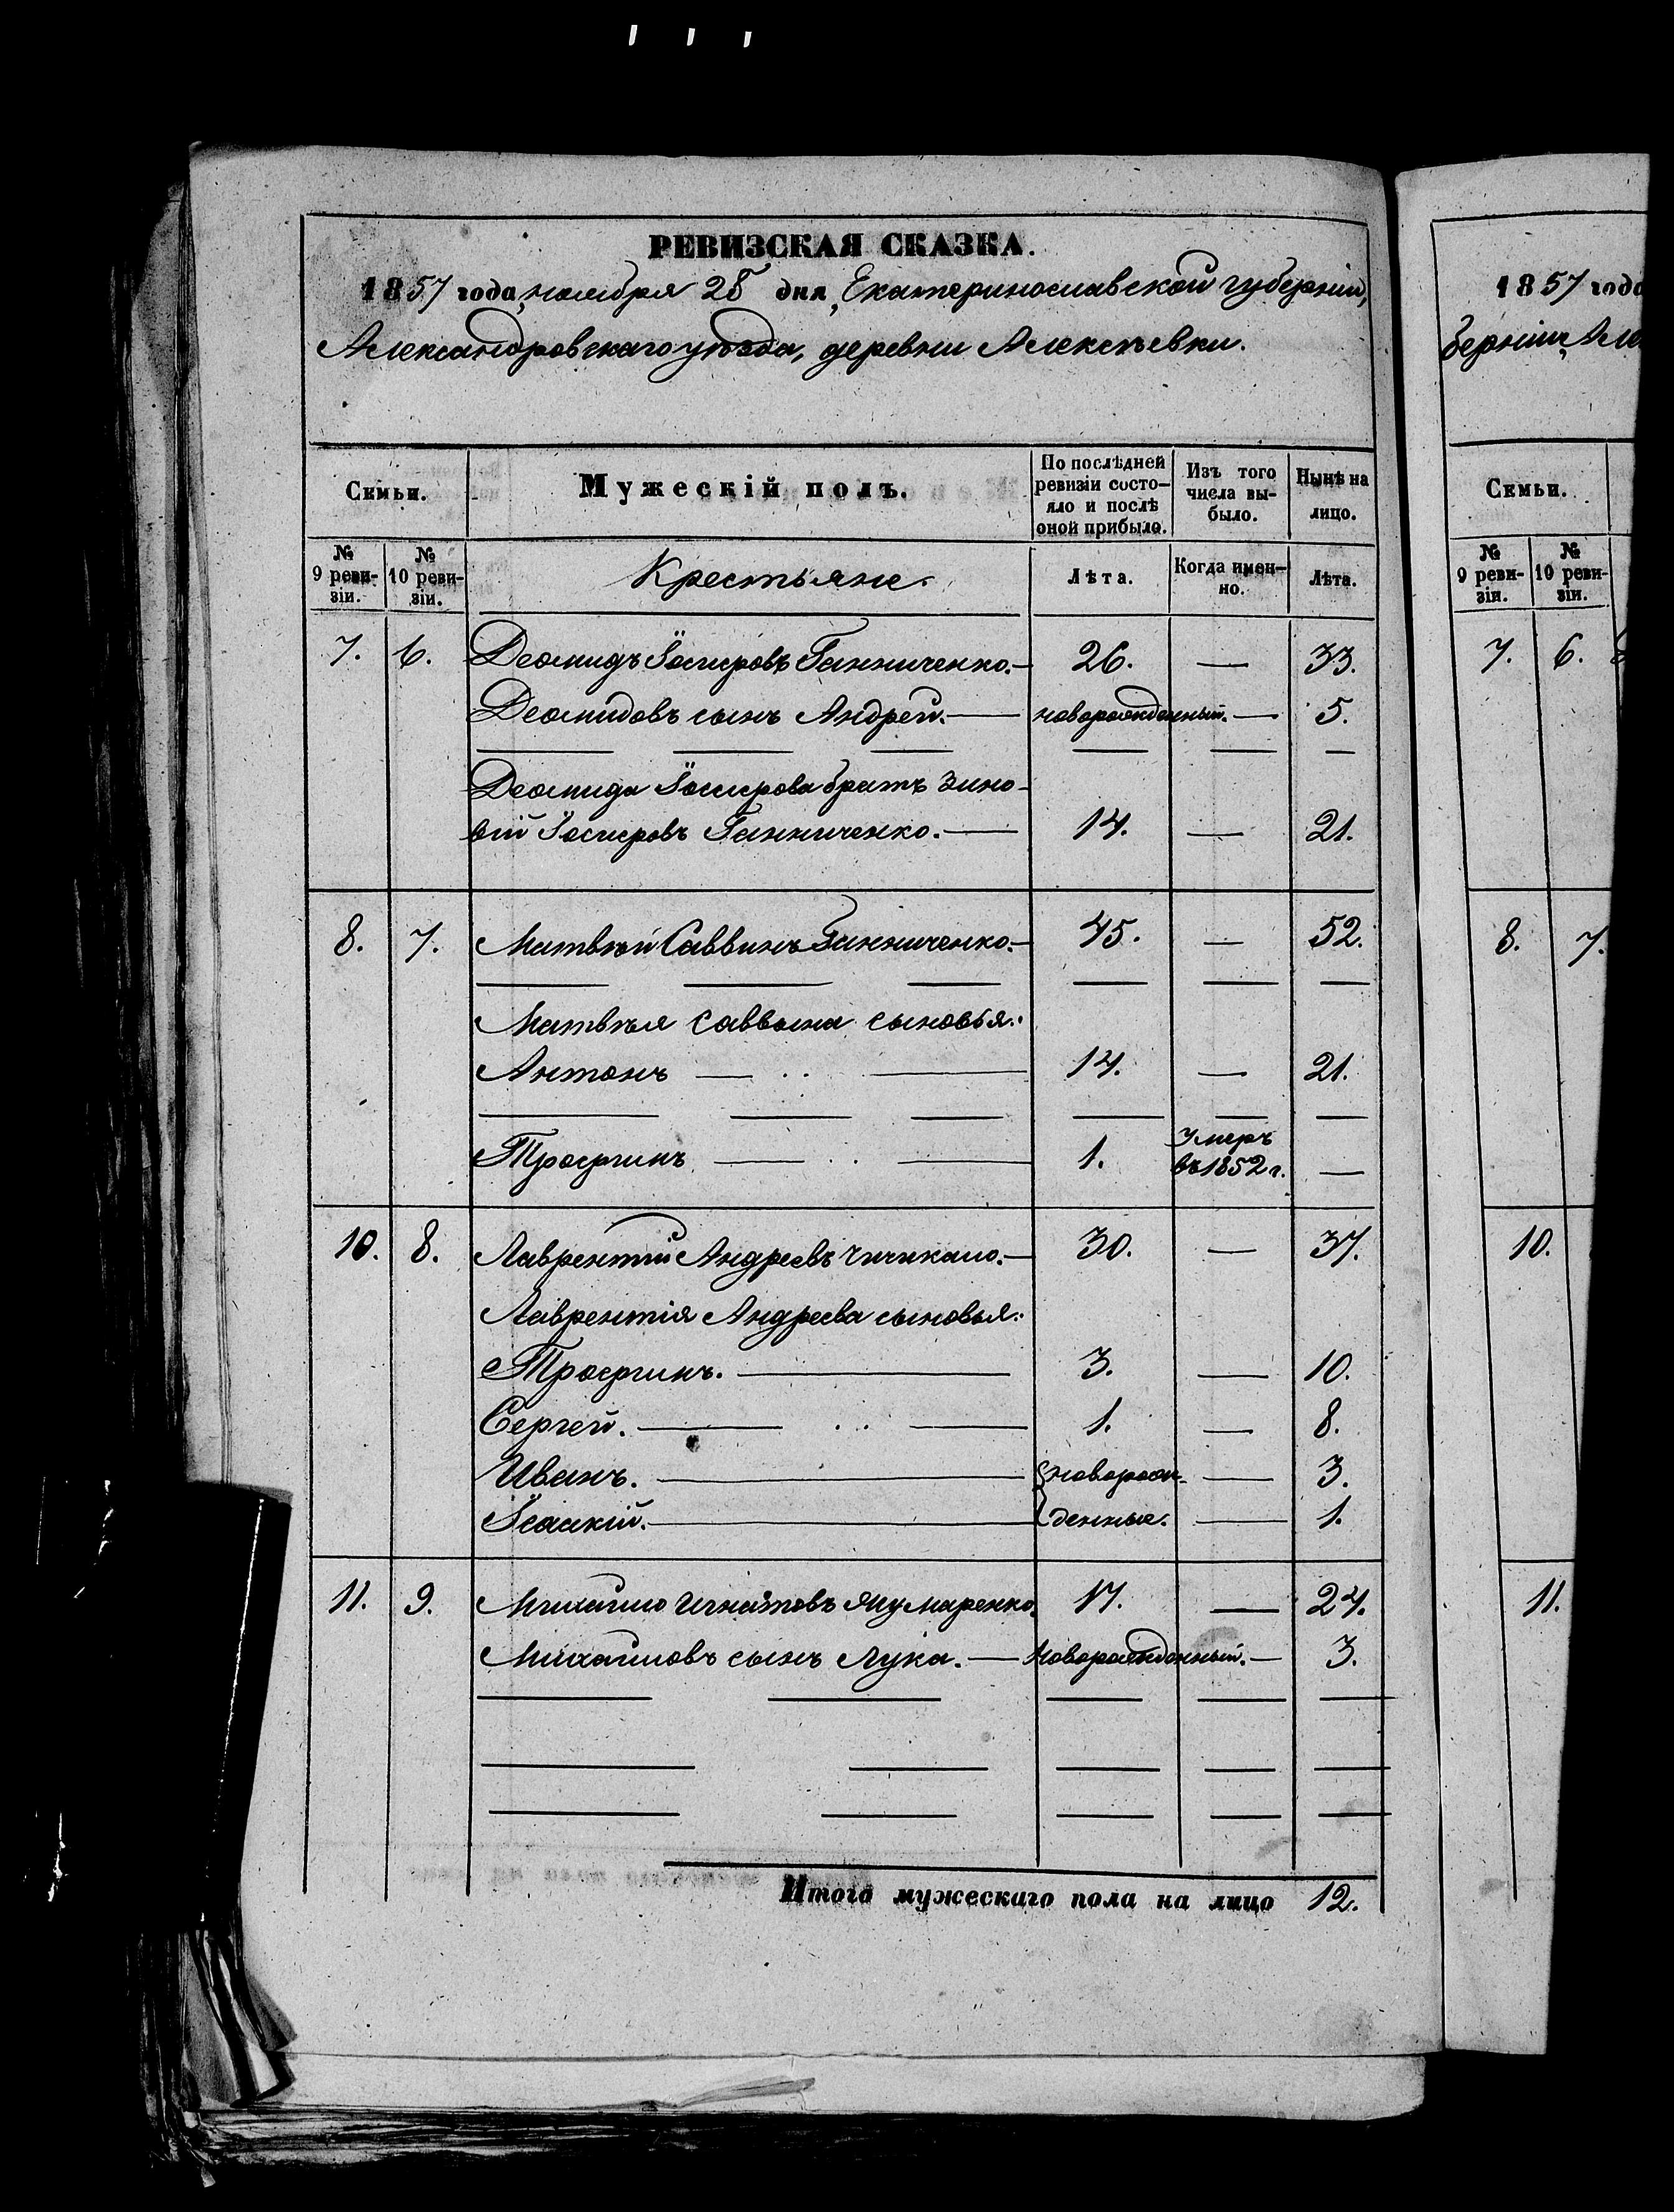 РЕВИЗСКАЯ СКАЗКА.
1857 года, ноября 28 дня, Екатеринославской губерніи,
Александровскаго уѣзда, деревни Алексѣевки.
Семьи.
Мужескій полъ.
По послѣдней ревизіи состо-
яло и послѣ оной прибыло.
Изъ того числа вы-
было.
Нынѣ на лицо.
№ 9 реви-
зіи.
№ 10 реви-
зіи.
Крестьяне.
Лѣта.
Когда имен-
но.
Лѣта.
7. 6. Деомидъ Іосифовъ Ганниченко.— 26. — 33.
Деомидовъ сынъ Андрей. — новорожденный. — 5.
Деомида Іосифова братъ Зино-
вій Іосифовъ Ганниченко. — 14. — 21.
8. 7. Матвѣй Саввинъ Ганниченко.— 45. — 52.
Матвѣя Саввина сыновья:
Антонъ — 14. — 21.
Трофимъ — 1. Умеръ
въ 1852 г. —
10. 8. Лаврентій Андреевъ Чичикало.— 30. — 37.
Лаврентія Андреева сыновья:
Трофимъ. — 3. — 10.
Сергей. — 1. — 8.
Иванъ. — новорож- — 3.
Іоакій. — денные. — 1.
11. 9. Михаило Игнатовъ 17. — 24.
Михаиловъ сынъ Лука. — Новорожденный. — 3.
Итого мужескаго пола на лицо 12.
1857 года
берніи, Але
Семьи.
№ 9 реви-
зіи.
№ 10 реви-
зіи.
7. 6.
8. 7.
10.
11.